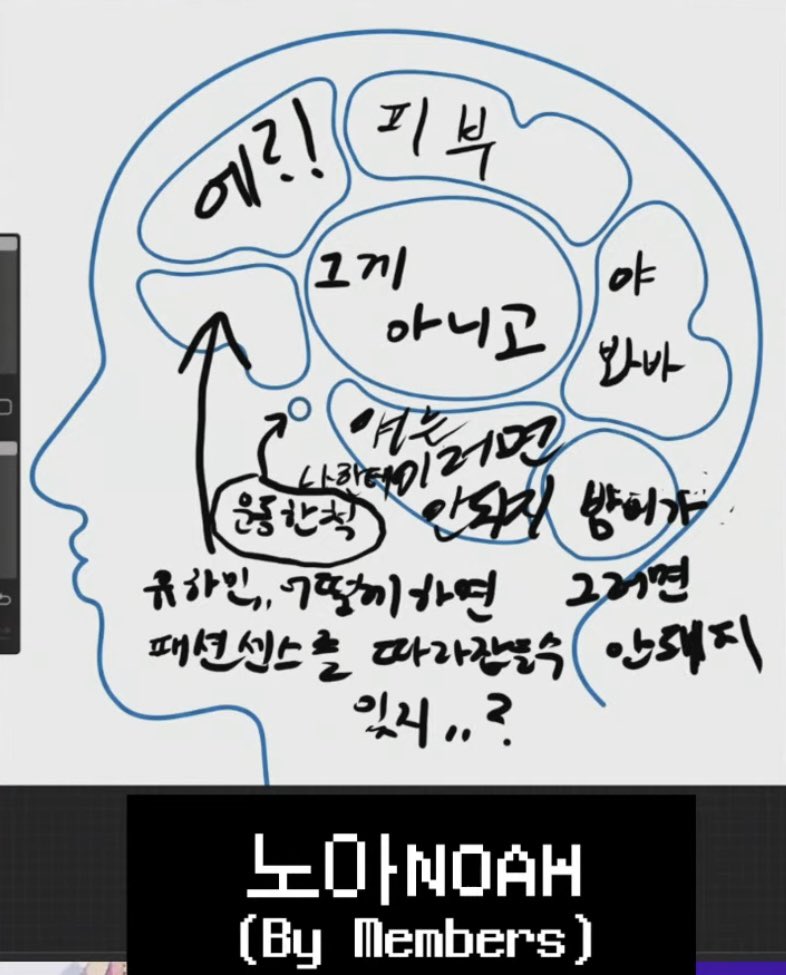 에?!
피부
그게
아니고
야
봐바
얘는
나한테 이러면
안되지
밤비가
그러면
안돼지
운동한척
유하민,, 어떻게하면
패션센스를 따라잡을수
있지,,?
노아NOAH
(By Members)